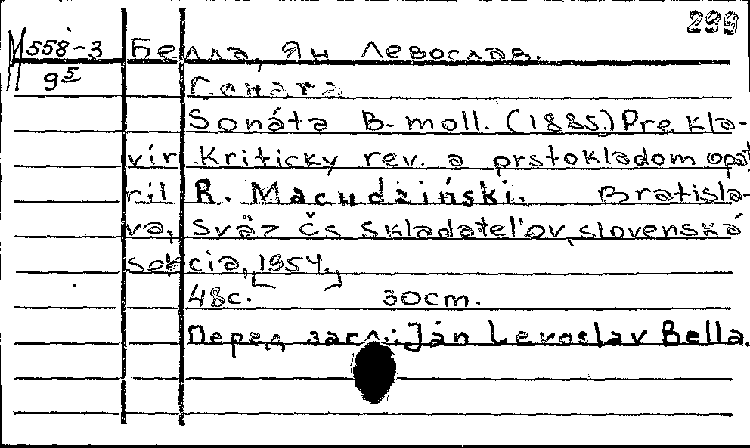 299
М 558-3 Белла, Ян Левослав.
95 Соната
Sonáta B-moll. (1885) Pre kla-
vír Kriticky rev. a prstokladom opat
ril R. Macudziński. Bratisla-
va, Sväz Čs Skladatel'ov, slovenská
sekcia, [1954.]
48с. 30cm.
Перед загл.: Ján Levoslav Bella.